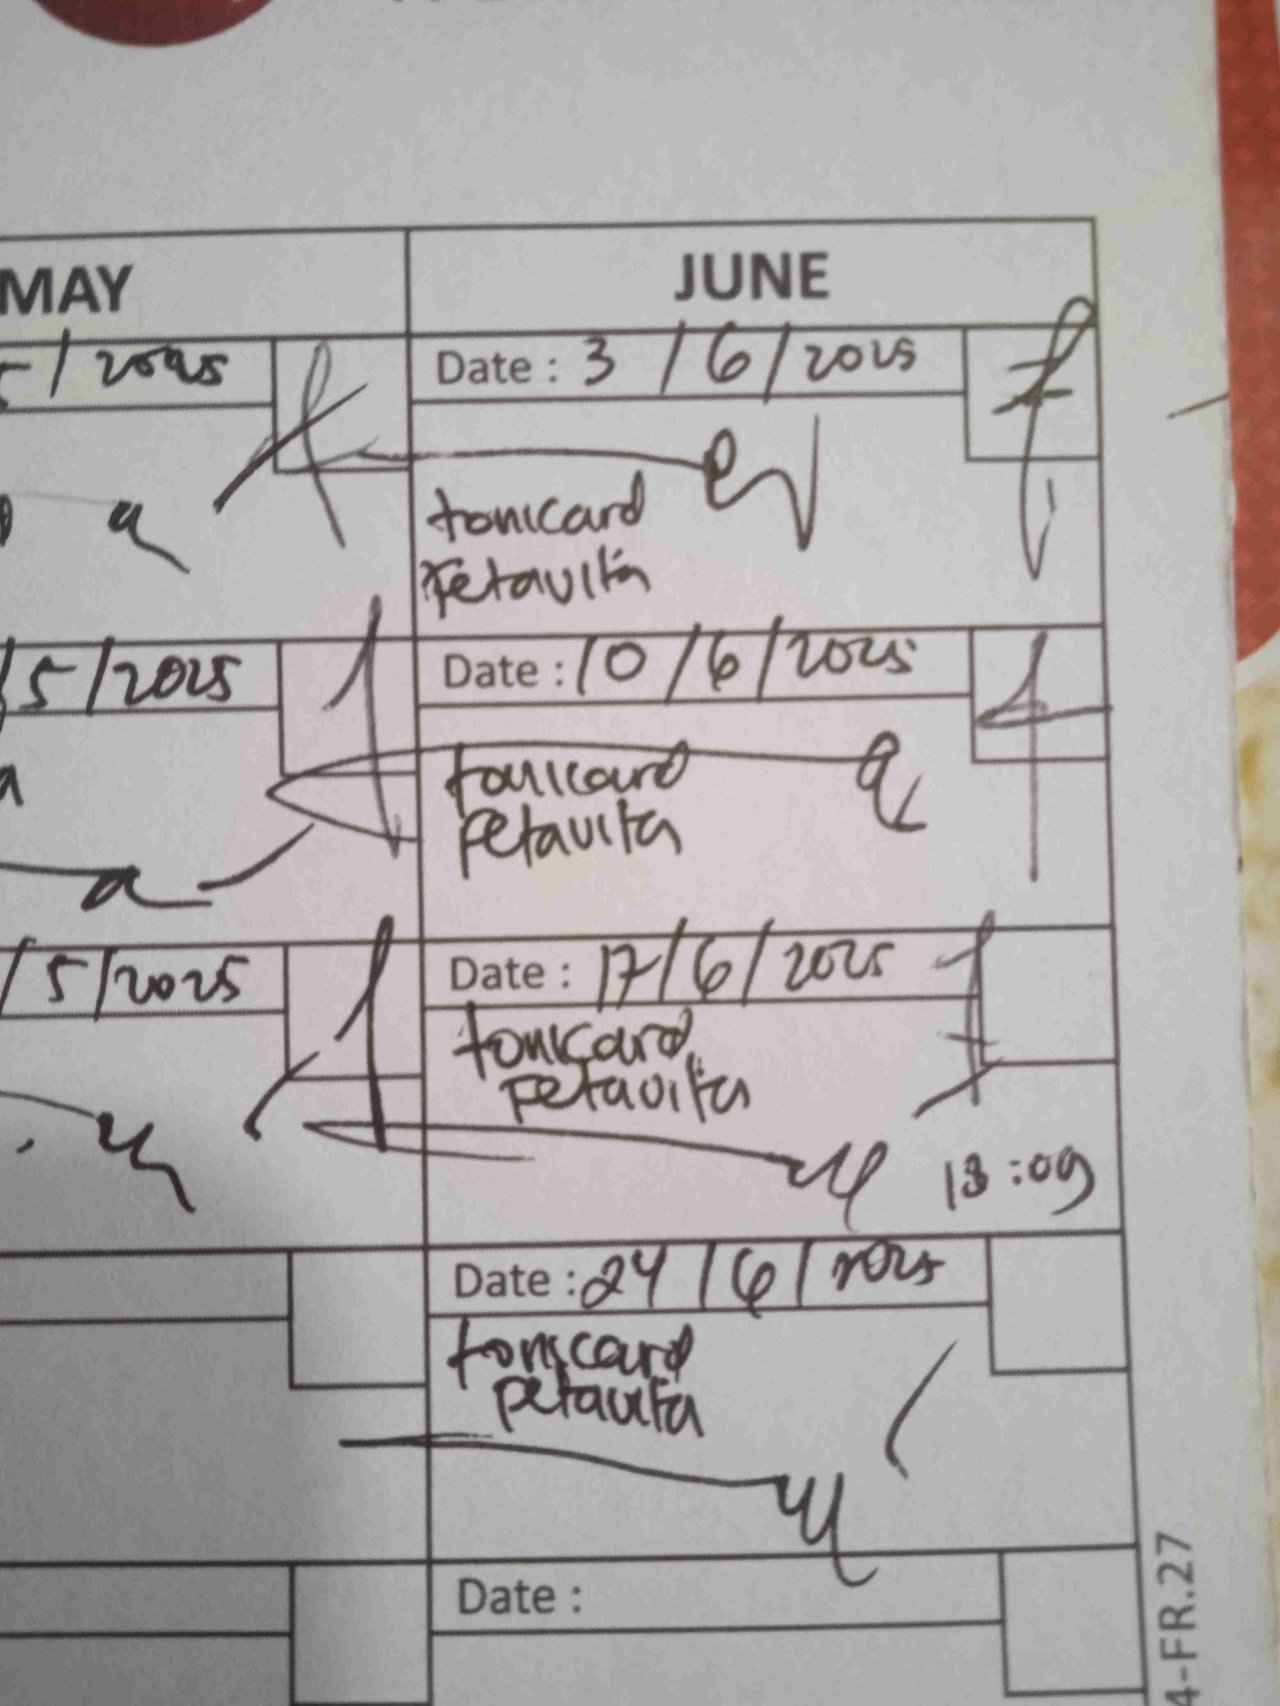 MAY
JUNE
5/2025
Date : 3/6/2025
tonicard
Petavita
/5/2025
Date : 10/6/2025
tonicard
petavita
/5/2025
Date : 17/6/2025
tonicard
petavita
13:09
Date : 24/6/2025
tonicard
petavita
Date :
4-FR.27